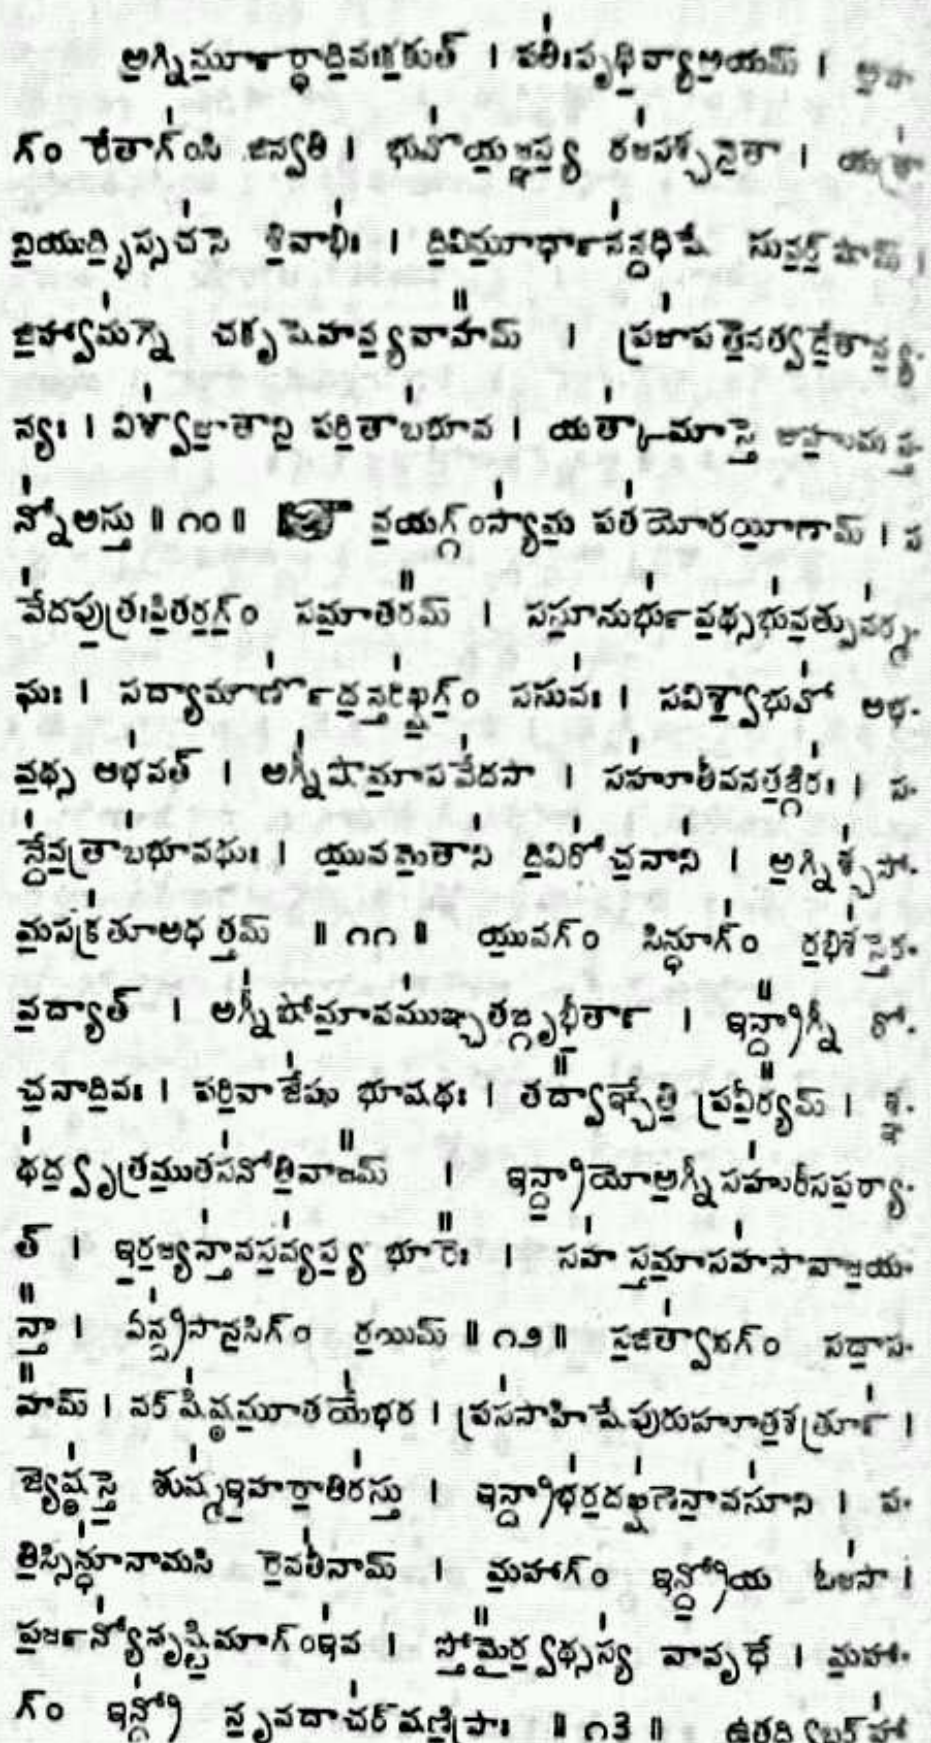 అ॒గ్నిర్మూ॒ర్ధాది॒వఃక॒కుత్ । పతిః॑పృథి॒వ్యాఅ॒యమ్ । అ॒పా
గ్ం రేతాగ్ం॑సి జిన్వతి । భువో॑య॒జ్ఞస్య॒ రజ॑సశ్చనే॒తా । యత్రా॑
ని॒యుద్భి॒స్సచ॑సే శి॒వాభిః॑ । ది॒విమూ॒ర్ధానం॑దధిషే సువ॒ర్‌షామ్ ।
జి॒హ్వామ॑గ్నే చకృషేహవ్య॒వాహ॑మ్ । ప్రజా॑పతే॒నత్వదే॒తాన్య॒
న్యః । విశ్వా॑జా॒తాని॒ పరి॒తాబ॑భూవ । యత్కా॑మాస్తే జుహు॒మస్త
న్నో॑అస్తు ॥ ౧౦ ॥ వ॒యగ్గ్ంస్యా॑మ॒ పత॑యోరయీ॒ణామ్ । స
వే॑దపు॒త్రఃపి॒తర॒గ్ం॒ సమా॒తర॑మ్ । ససూ॒నుర్భు॑వ॒థ్సభు॑వ॒త్పున॑ర్మ
ఘః । సద్యామౌర్ణో॑ద॒న్తరి॑ఖ్ష॒గ్ం॒ ససువః॑ । సవిశ్వా॒భువో॑ అభ
వ॒థ్స ఆభ॑వత్ । అగ్నీ॑షోమా॒సవే॑దసా । సహూ॑తీవనత॒ఙ్గిరః॑ । స
న్దే॑వ॒త్రాబ॑భూవథుః । యు॒వమే॒తాని॑ ది॒విరో॑చ॒నాని॑ । అ॒గ్నిశ్చ॑సో
మ॒సక్ర॑తూఅధత్తమ్ ॥ ౧౧ ॥ యు॒వగ్ం సిన్ధూగ్ం॑ ర॒భిశ॑స్తేర
వ॒ద్యాత్ । అగ్నీ॑షోమా॒వము॑ఞ్చతఙ్గృభీ॒తాన్ । ఇన్ద్రా॑గ్నీ రో
చ॒నాది॒వః । పరి॒వాజే॑షు భూషథః । తద్వా॑ఞ్చేతి॒ ప్రవీ॒ర్య॑మ్ । శ్ఞ
థ॑ద్వృ॒త్రము॒తస॑నోతి॒వాజ॑మ్ । ఇన్ద్రా॒యోఅ॒గ్నీసహు॑రీసప॒ర్యా
త్ । ఇ॒ర॒జ్యన్తా॑వస॒వ్య॑స్య॒ భూరేః॑ । సహ॑స్తమా॒సహ॑సావాజ॒య
న్తా॑ । ఏన్ద్ర॑సాన॒సిగ్ం ర॒యిమ్ ॥ ౧౨ ॥ స॒జిత్వా॑నగ్ం సదా॒స
హ॑మ్ । వర్‌షి॑ష్ఠమూ॒తయే॑భర । ప్రస॑సాహిషేపురుహూత॒శత్రూన్॑ ।
జ్యేష్ఠ॑స్తే॒ శుష్మ॑ఇ॒హరా॒తిర॑స్తు । ఇన్ద్రాభ॑ర॒దఖ్షి॑ణేనా॒వసూ॑ని । ప
తి॒స్సిన్ధూ॑నామసి రే॒వతీ॑నామ్ । మ॒హాగ్ం ఇన్ద్రో॒య ఓజ॑సా ।
ప॒ర్జన్యో॑వృష్టి॒మాగ్ంఇ॑వ । స్తోమై॑ర్వ॒థ్సస్య॑ వావృధే । మ॒హా
గ్ం ఇన్ద్రో॑ నృ॒వదాచ॑ర్‌షణి॒ప్రాః ॥ ౧౩ ॥